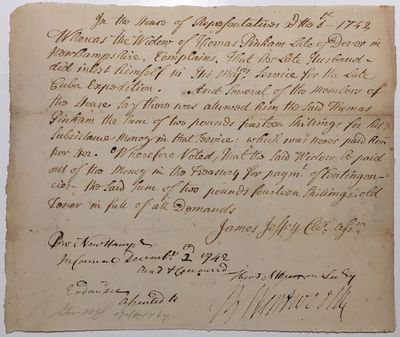 In the House of Representatives 1742
Whereas the Widow of Thomas Pinham Late of Dover in
Newhampshire, Complains, That her Late Husband
did inlist himself in His Majtys Service for the Late
Cuba Expedition. And Several of the Members of
the House Say there was allowed him the Said Thomas
Pinham the Sum of two pounds fourteen Shillings for his
Subsistance Money in that Service: which was never paid him
nor her. Wherefore Voted, That the Said Widow be paid
out of the Money in the Treasury for paym. of Contingen-
cies the Said Sum of two pounds fourteen Shillings old
Tenor in full of all Demands
James Jeffry Cler. Assm
Pro: New Hampr
In Council Decembr 2d 1742
Read & Concurrd
Theod Atkinson Secry
Eodm Die
assented to
B Wentworth